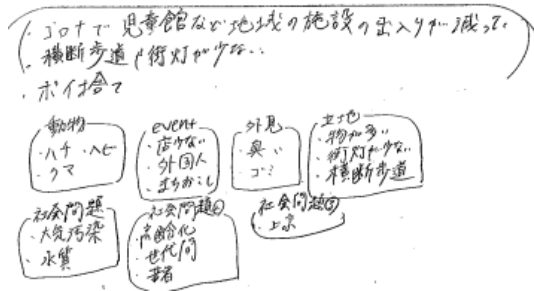 ・コロナで児童館など地域の施設の出入りが減って、
・横断歩道や街灯が少ない
・ポイ捨て
動物
・ハチ ・ヘビ
・クマ
event
・店少ない
・外国人
・まちおこし
外見
・臭い
・ゴミ
立地
・物が多い
・街灯が少ない
・横断歩道
社会問題
・大気汚染
・水質
社会問題②
・高齢化
・世代間
・若者
社会問題③
・上京